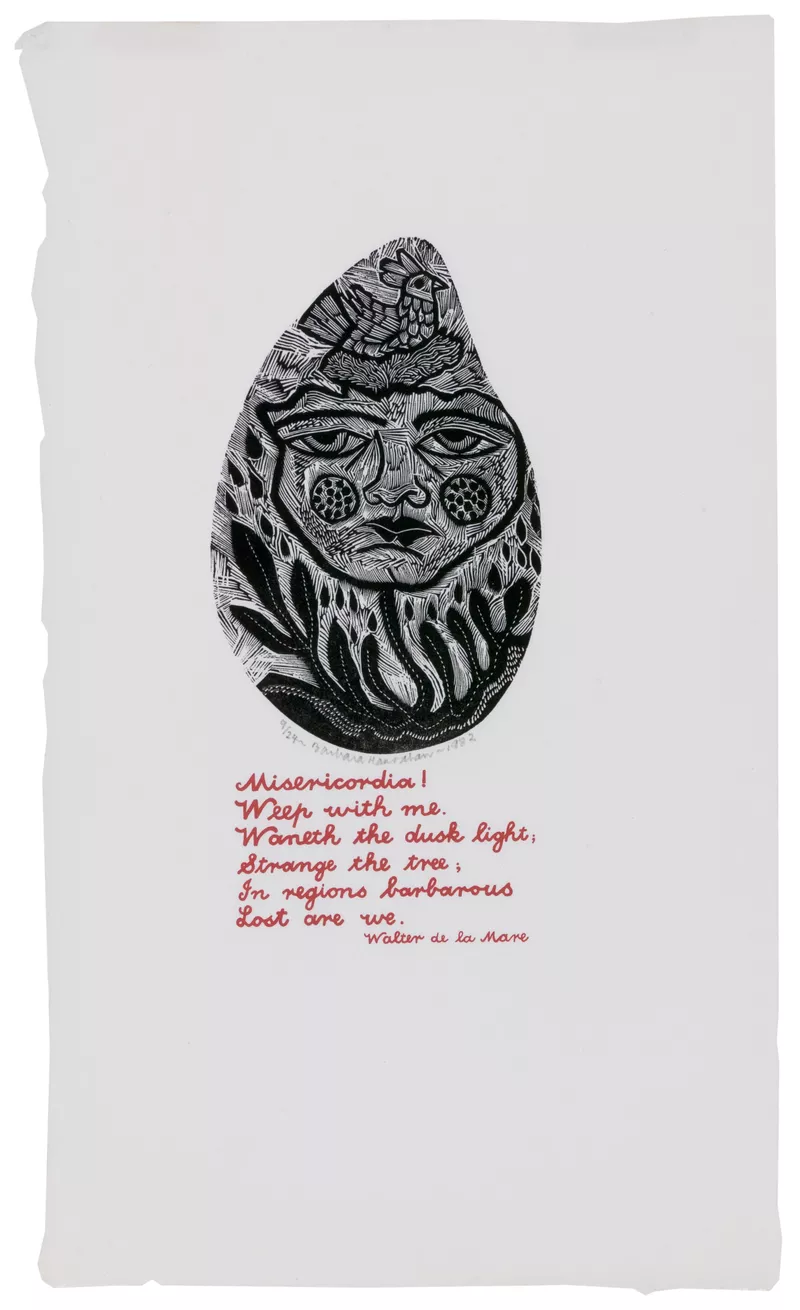 9/24 ~ Barbara Hanrahan ~ 1982
Misericordia!
Weep with me.
Waneth the dusk light;
Strange the tree;
In regions barbarous
Lost are we.
Walter de la Mare